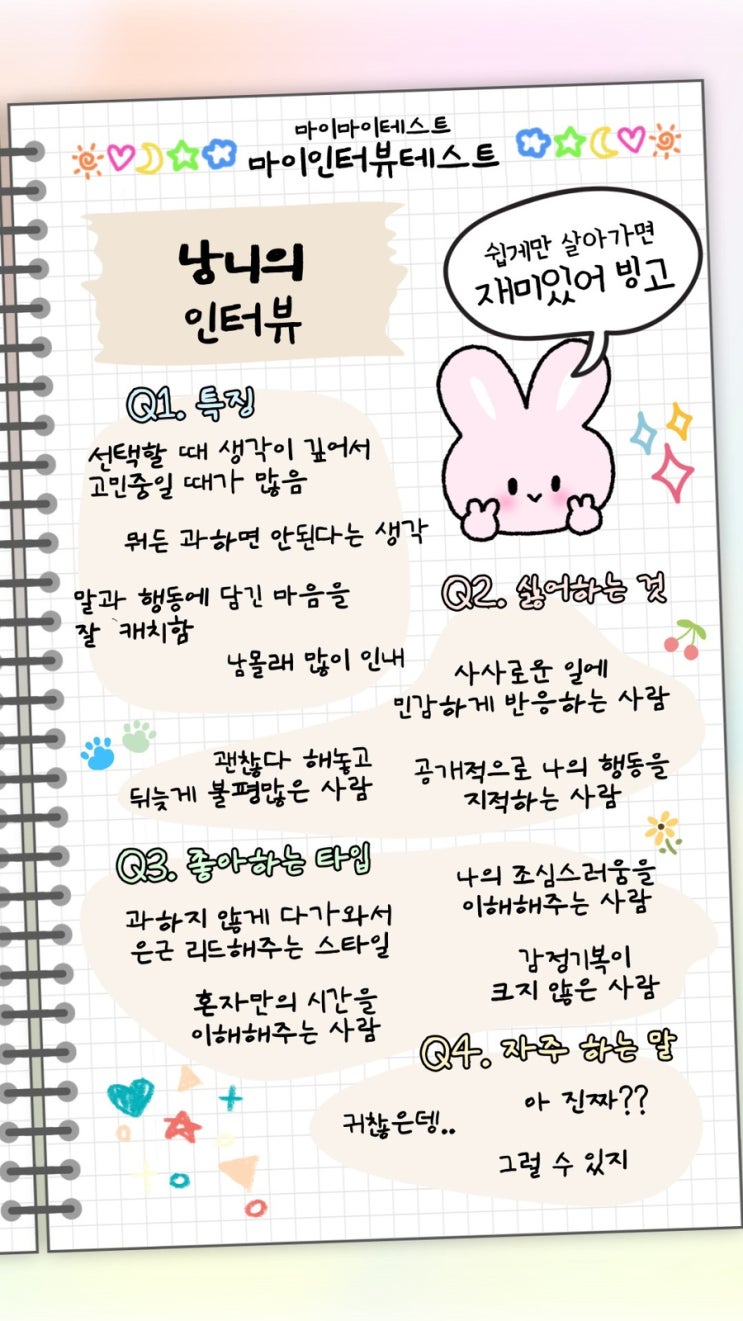 마이마이테스트
마이인터뷰테스트
낭니의
인터뷰
쉽게만 살아가면
재미있어 빙고
Q1. 특징
선택할 때 생각이 깊어서
고민중일 때가 많음
뭐든 과하면 안된다는 생각
말과 행동에 담긴 마음을
잘 캐치함
남몰래 많이 인내
Q2. 싫어하는 것
사사로운 일에
민감하게 반응하는 사람
괜찮다 해놓고
뒤늦게 불평많은 사람
공개적으로 나의 행동을
지적하는 사람
Q3. 좋아하는 타입
과하지 않게 다가와서
은근 리드해주는 스타일
나의 조심스러움을
이해해주는 사람
혼자만의 시간을
이해해주는 사람
감정기복이
크지 않은 사람
Q4. 자주 하는 말
아 진짜??
귀찮은뎅..
그럴 수 있지